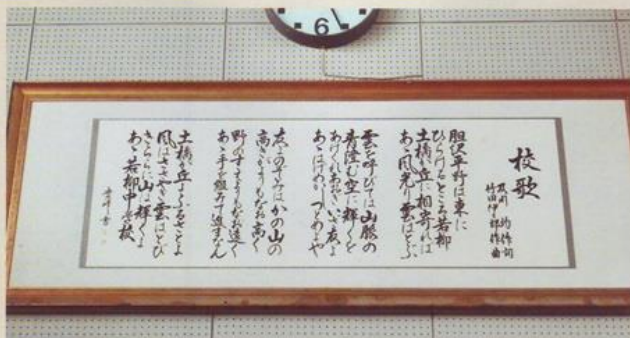 6
校歌
及川 均 作詞
作曲
胆沢平野は東に
ひらけるところ若柳
土橋が丘に相寄れば
あゝ風光り雲はとぶ
雲を呼びては山脈の
青澄む空に輝くを
あけくれあおぎいざ友よ
あゝはげめかしつとめばや
のぞみはかの山の
高きよりもなお高く
野のすえよりもなお遠く
あゝ手を組みて進まなん
土橋が丘よふるさとよ
風はささやき雲はとび
きららに山は輝くよ
あゝ若柳中学校